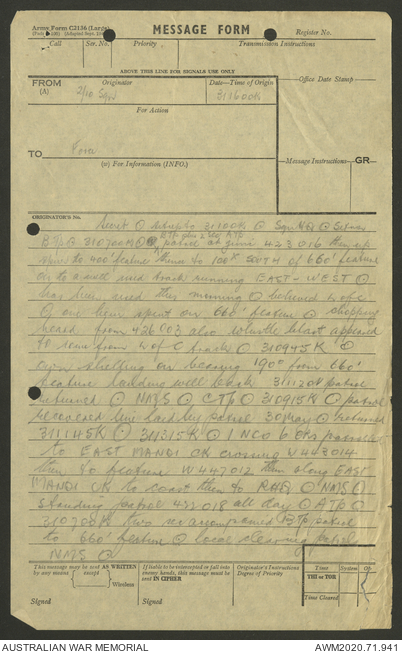 Army Form C2136 (Large)
MESSAGE FORM
Register No.
Call
Ser. No.
Priority
Transmission Instructions
ABOVE THIS LINE FOR SIGNALS USE ONLY
FROM
(A)
Originator
Date—Time of Origin
Office Date Stamp
2/10
311600K
For Action
TO
Fora
(W) For Information (INFO.)
Message Instructions
GR
ORIGINATOR'S No.
Secret O Sitrep to 311600K O O
B Tp O 310700K O patrol 423016
to 400' feature thence to 100x South of 660' feature
on to a well used track running EAST - WEST O
has been used this morning O believed
O one hour spent on 660' feature O chopping
heard from 426003 also whistle blast appeared
to come from W of C track O 310945K O
own shelling on bearing 190° from 660'
feature landing well 311120K patrol
returned O NMS O C Tp O 310915K O patrol
recovered line laid by patrol 30 May O returned
311145K O 311315K O 1 NCO 6 ORs
to EAST MANDI CK crossing W443014
then to W447012 then along EAST
MANDI CK to coast then to RHQ O NMS O
Standing patrol 432018 all day O A Tp O
310700K two accompanied B Tp patrol
to 660' feature O local clearing patrols
NMS O
This message may be sent AS WRITTEN
by any means
(except
Wireless
If liable to be intercepted or fall into
enemy hands, this message must be
sent IN CIPHER
Originator's Instructions
Degree of Priority
Time
System
Op.
THI or TOR
Time Cleared
Signed
Signed
AUSTRALIAN WAR MEMORIAL
AWM2020.71.941